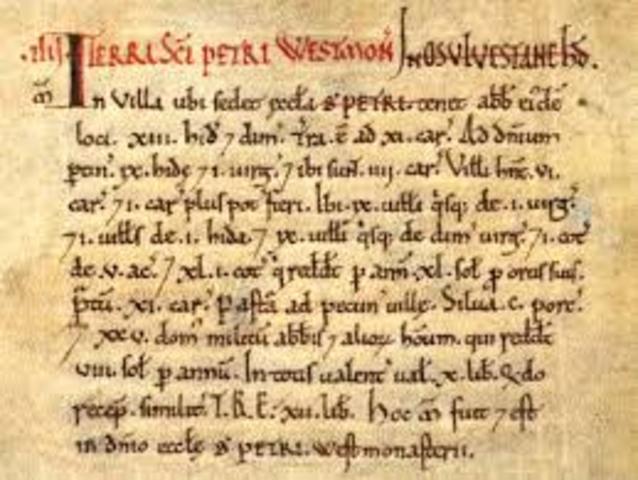 .IIII. TERRA SC̄I PETRI WESTMON̄ IN OSVLVESTANE HD̄.
m̄ In Villa ubi sedet æccła S̄ PETRI. tenet abb̄ eiđe
loci. xiii. hiđ 7 dim̄. Tr̄a. ē ad xi. car̄. Ad dn̄ium
ptin̄. ix. hidę 7 i. uirg̃. 7 ibi sun̄t. iiii. car̄. Villi hn̄t. vi.
car̄. 7 i. car̄ plus pot̃ fieri. Ibi. ix. uilli q̄sq; de. i. uirg̃.
7 i. uilłs de. i. hida. 7 ix. uilli q̄sq; de dim̄ uirg̃. 7 i. cot̃
de. v. ac̄. 7 xl. i. cot̃ q̄ redđt p ann̄. xl. soł p ortis suis.
p̄tū. xi. car̄. Pastā ad pecun̄ uillę. Silua. c. porc̄.
7 xxv. dom̄ militū abbis 7 alioꝝ hōum. qui redđt
viii. soł p annū. In totis ualent̃ uał. x. lib̄. Q̇do
recep̄. similit̃. T. R. E. xii. lib̄. Hoc m̄ fuit 7 est
in dn̄io æcclę S̄ PETRI. Westmonasterii.